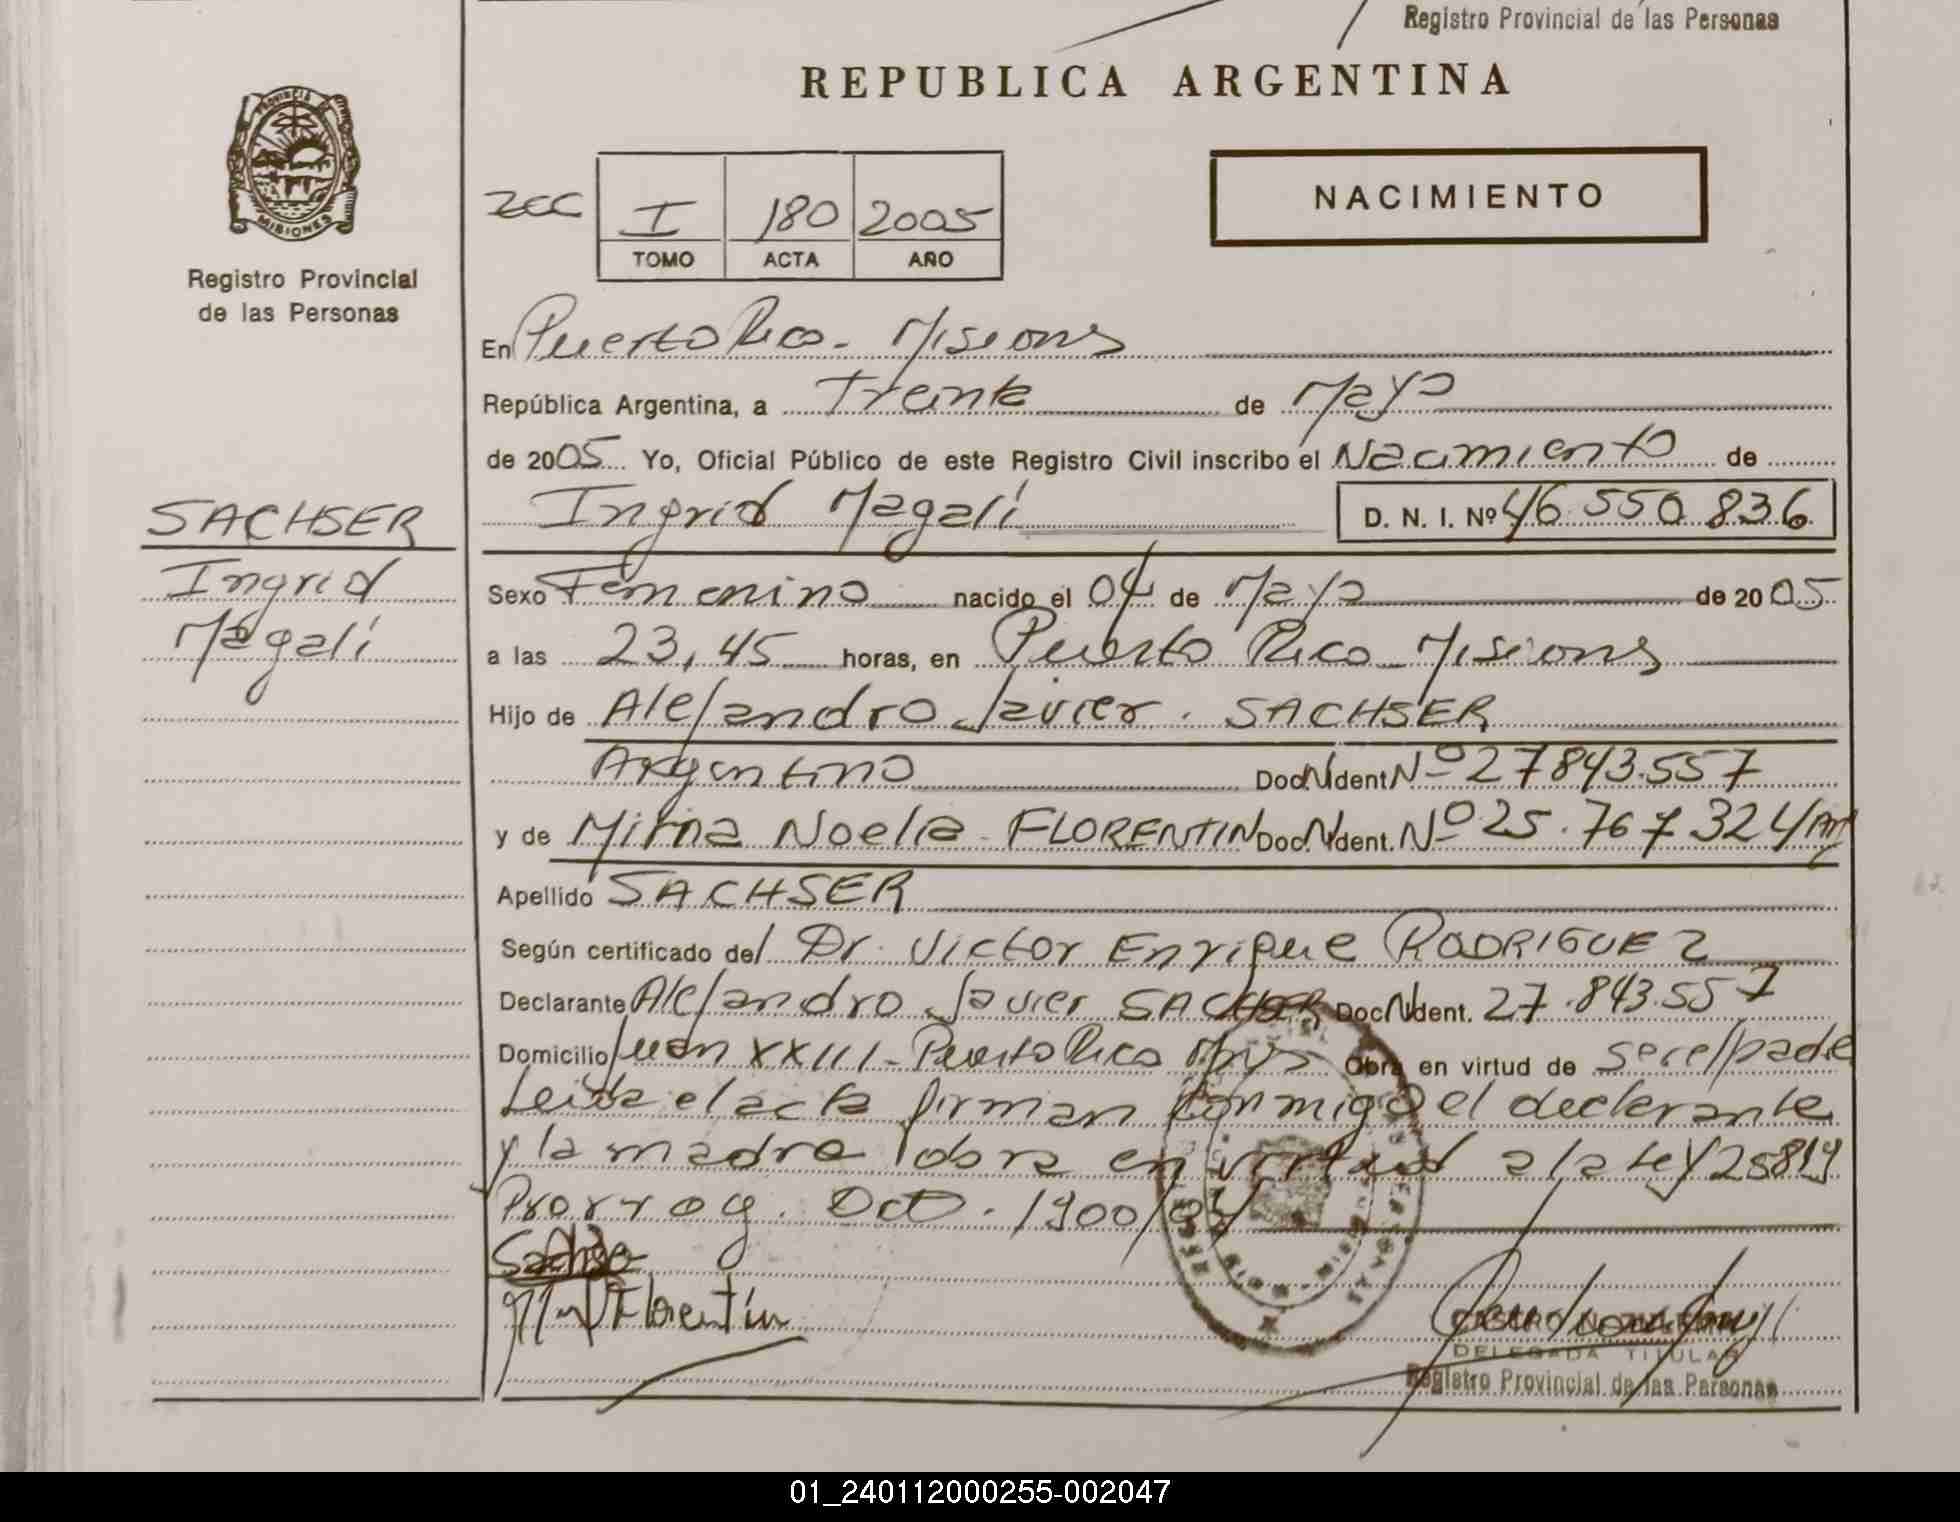 Registro Provincial de las Personas
REPUBLICA ARGENTINA
PROVINCIA DE MISIONES
Registro Provincial
de las Personas
NACIMIENTO
I 180 2005
TOMO ACTA AÑO
En Puerto Rico - Misiones
República Argentina, a Treinta de Mayo
de 2005 Yo, Oficial Público de este Registro Civil inscribo el Nacimiento de
Ingrid Magalí D. N. I. Nº 46.550.836
SACHSER
Ingrid
Magalí
Sexo Femenino nacido el 04 de Mayo de 2005
a las 23,45 horas, en Puerto Rico - Misiones
Hijo de Alejandro Javier. SACHSER
Argentino Doc. Ident Nº 27843.557
y de Mirna Noelia - FLORENTIN Doc. Ident. Nº 25.767.324/Arg
Apellido SACHSER
Según certificado del Dr. Victor Enrique RODRIGUEZ
Declarante Alejandro Javier SACHSER Doc. Ident. 27.843.557
Domicilio Juan XXIII - Puerto Rico Mnes Obra en virtud de ser el padre
Leida el acta firman conmigo el declarante
y la madre obra en virtud a la Ley 25819
Prorrog. Dcto. 1900/04
Sachser
Florentín
DELEGADA TITULAR
Registro Provincial de las Personas
01_240112000255-002047